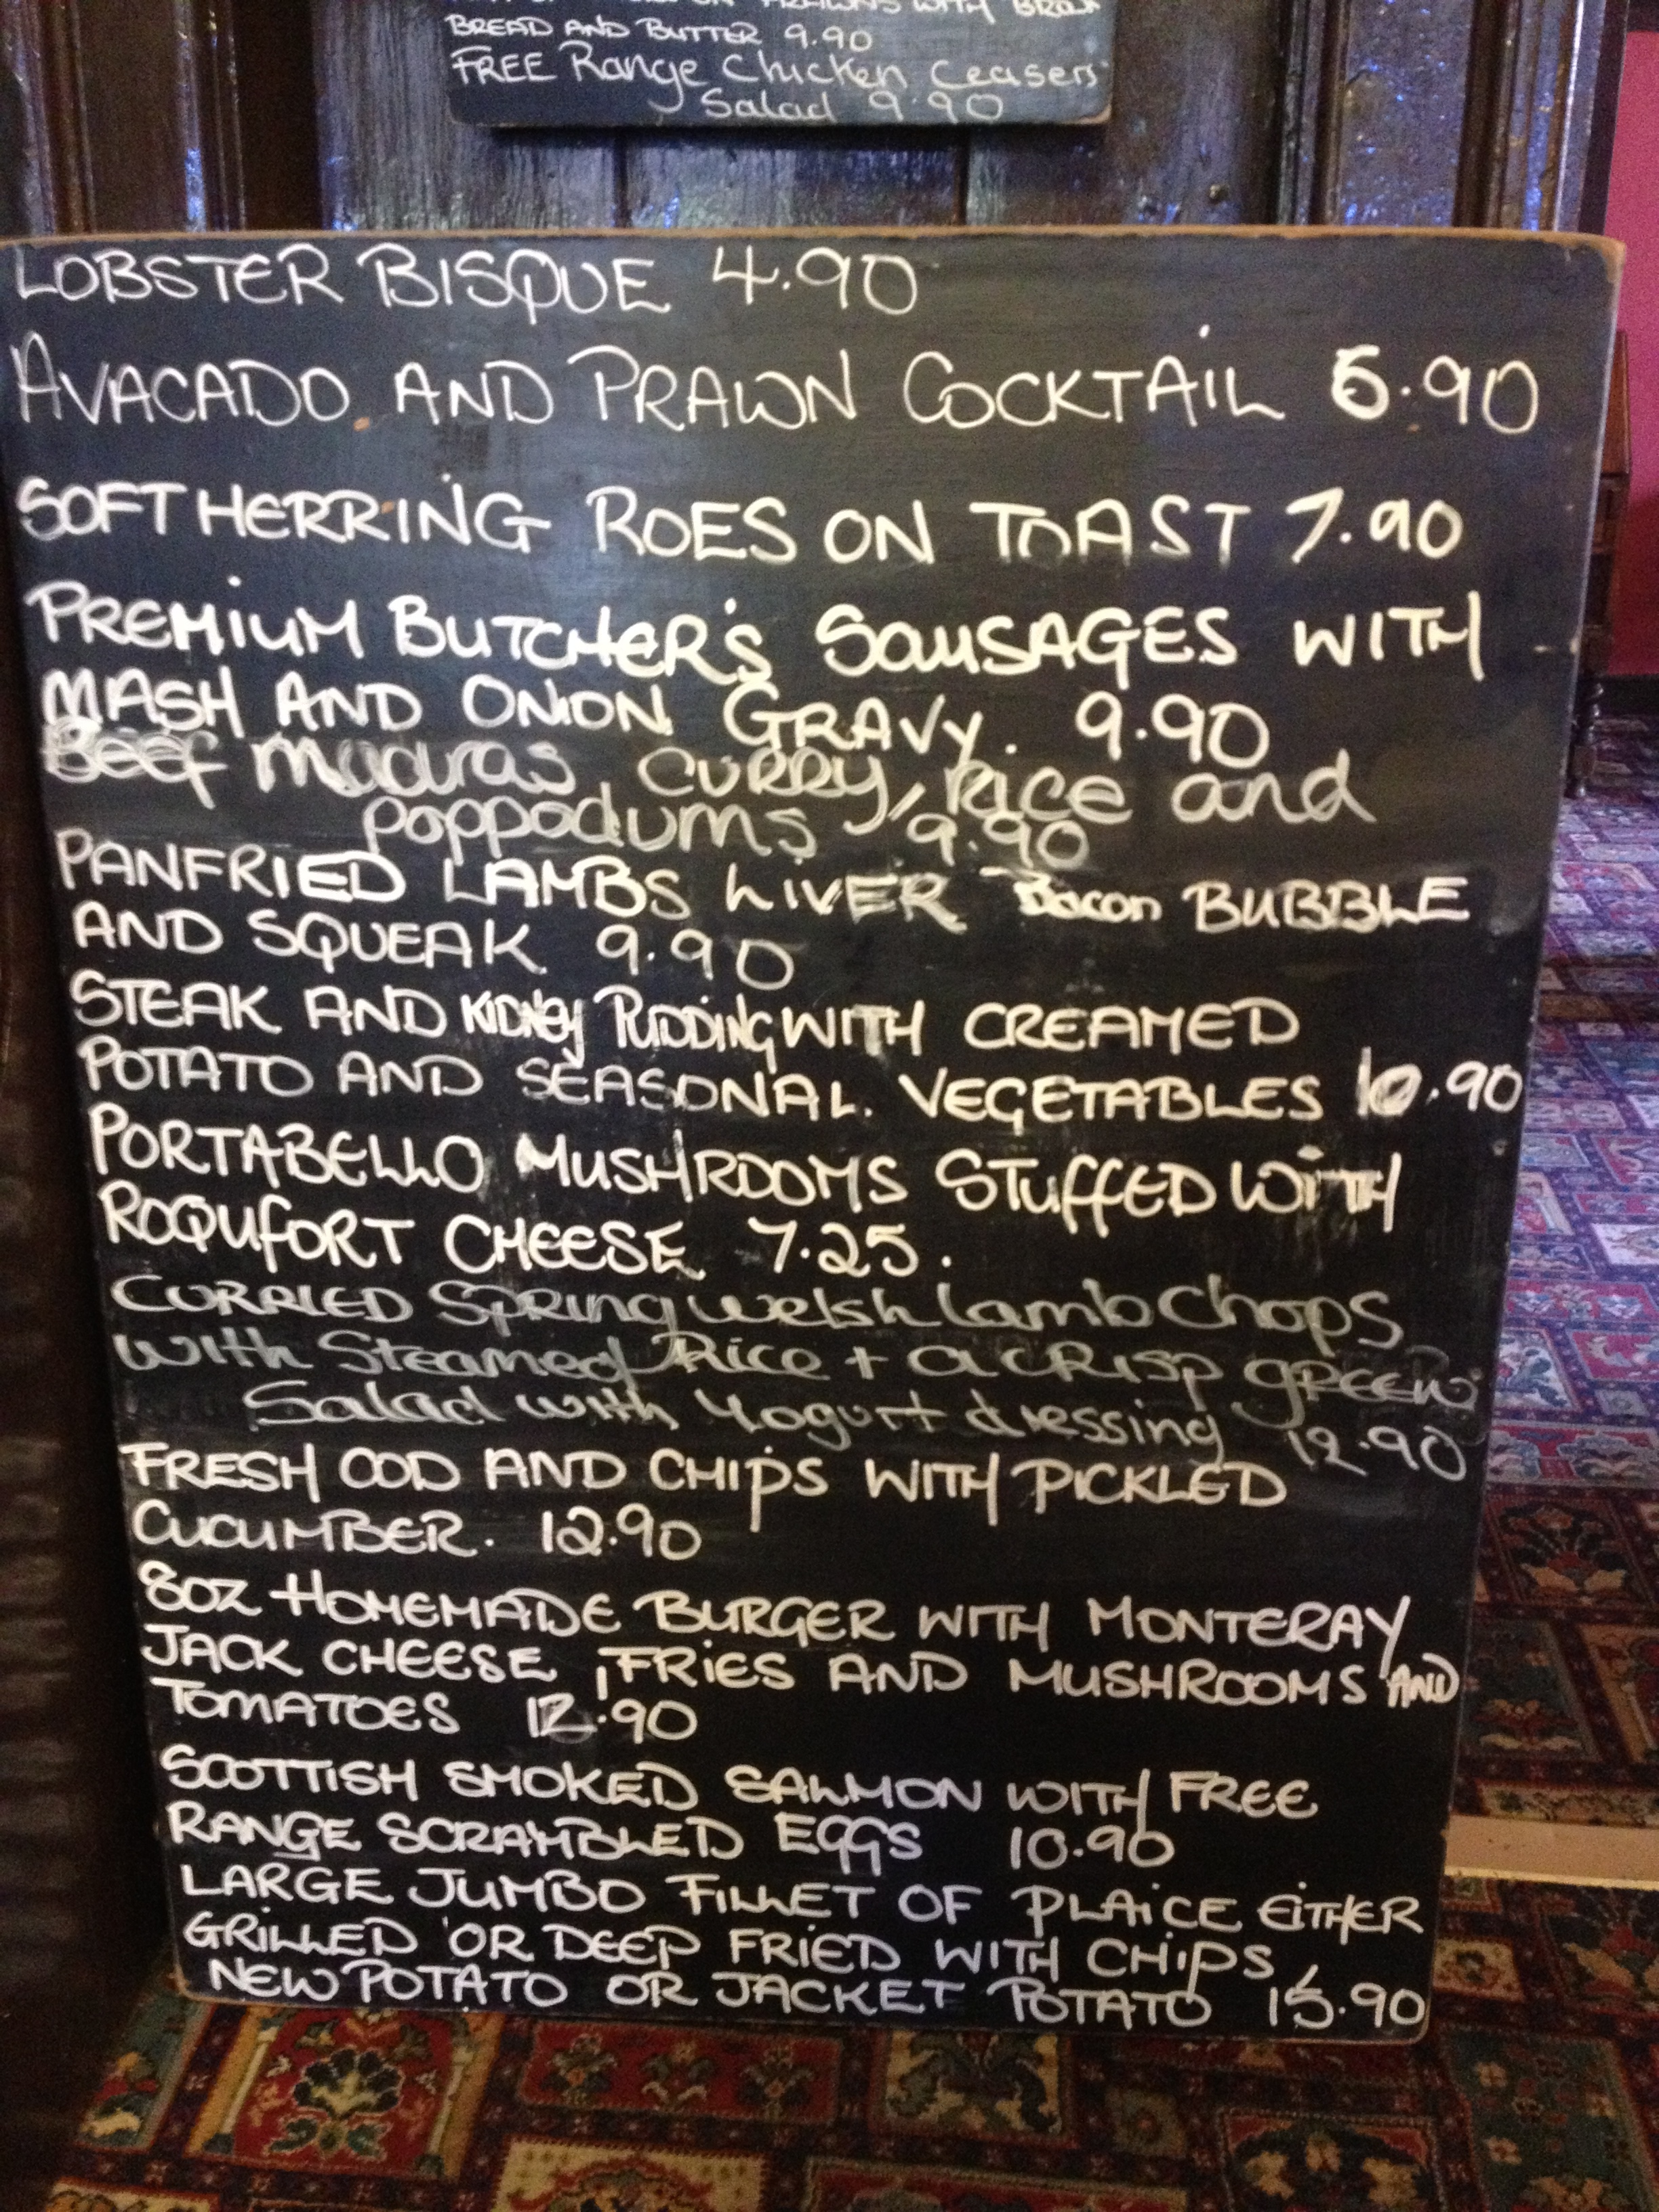 PRAWNS WITH BROWN
BREAD AND BUTTER 9.90
FREE Range Chicken Ceasers
Salad 9.90
LOBSTER BISQUE 4.90
AVACADO AND PRAWN COCKTAIL 6.90
SOFT HERRING ROES ON TOAST 7.90
PREMIUM BUTCHER'S SAUSAGES WITH
MASH AND ONION GRAVY. 9.90
Beef Madras CURRY, Rice and
poppodums 9.90
PANFRIED LAMBS LIVER Bacon BUBBLE
AND SQUEAK 9.90
STEAK AND KIDNEY PUDDING WITH CREAMED
POTATO AND SEASONAL VEGETABLES 10.90
PORTABELLO MUSHROOMS STUFFED WITH
ROQUFORT CHEESE 7.25.
CURRIED Spring Welsh Lamb Chops
With Steamed Rice + a CRISP GREEN
Salad with Yogurt dressing 12.90
FRESH COD AND CHIPS WITH PICKLED
CUCUMBER. 12.90
8OZ HOMEMADE BURGER WITH MONTERAY
JACK CHEESE, FRIES AND MUSHROOMS AND
TOMATOES 12.90
SCOTTISH SMOKED SALMON WITH FREE
RANGE SCRAMBLED EGGS 10.90
LARGE JUMBO FILLET OF PLAICE EITHER
GRILLED OR DEEP FRIED WITH CHIPS,
NEW POTATO OR JACKET POTATO 15.90